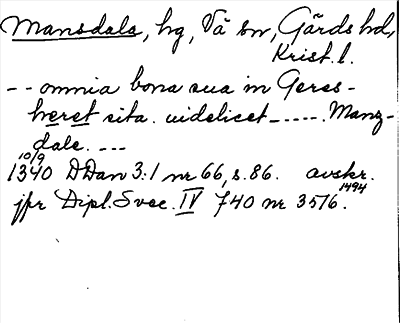 Mansdala, hg, Vä sn, Gärds hd,
Krist. l.
- - omnia bona sua in Geres-
heret sita. uidelicet - - - - -. Manz-
dale. - - -
10/9
1340 DDan 3:1 nr 66, s. 86. avskr.
1494
jfr Dipl. Svec. IV 740 nr 3516.